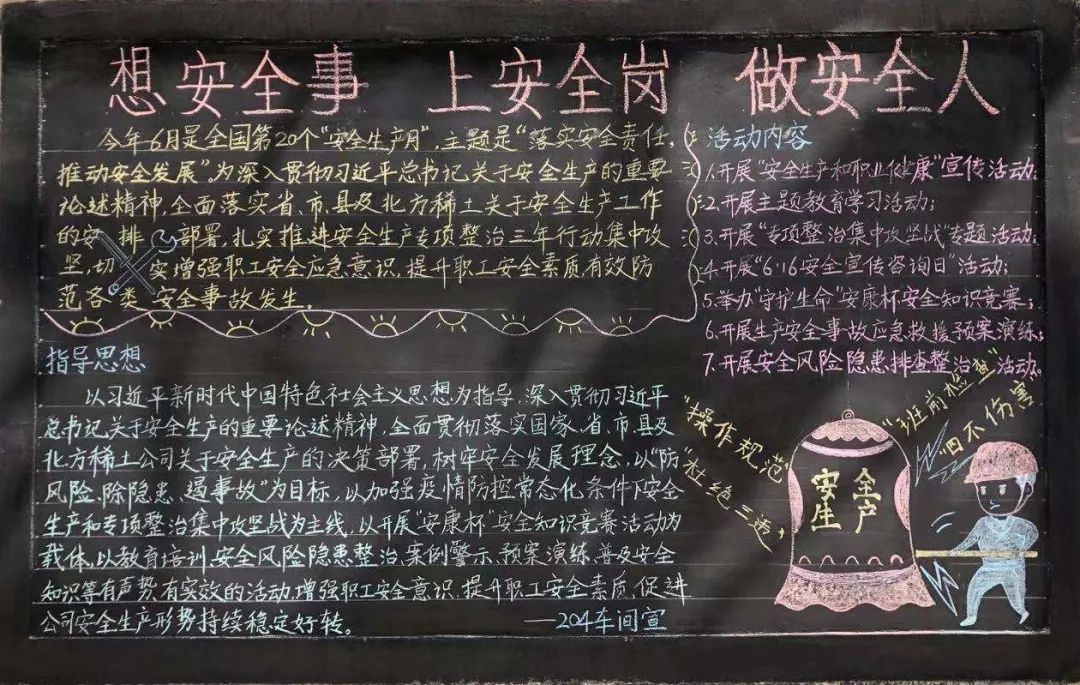 想安全事 上安全岗 做安全人
今年6月是全国第20个"安全生产月",主题是"落实安全责任,
推动安全发展",为深入贯彻习近平总书记关于安全生产的重要
论述精神,全面落实省、市、县及北方稀土关于安全生产工作
的安排部署,扎实推进安全生产专项整治三年行动集中攻
坚,切实增强职工安全应急意识,提升职工安全素质有效防
范各类安全事故发生。
指导思想
以习近平新时代中国特色社会主义思想为指导,深入贯彻习近平
总书记关于安全生产的重要论述精神,全面贯彻落实国家、省、市、县及
北方稀土公司关于安全生产的决策部署,树牢安全发展理念,以"防
风险、除隐患、遏事故"为目标,以加强疫情防控常态化条件下安全
生产和专项整治集中攻坚战为主线,以开展"安康杯"安全知识竞赛活动为
载体,以教育培训、安全风险隐患整治、案例警示、预案演练、普及安全
知识等有声势、有实效的活动,增强职工安全意识,提升职工安全素质,促进
公司安全生产形势持续稳定好转。
——204车间宣
活动内容
1.开展"安全生产和职业健康"宣传活动;
2.开展主题教育学习活动;
3.开展"专项整治集中攻坚战"专题活动;
4.开展"6·16安全宣传咨询日"活动;
5.举办"守护生命"安康杯安全知识竞赛;
6.开展生产安全事故应急救援预案演练;
7.开展安全风险隐患排查整治活动。
"操作规范"
"杜绝三违"
"班前检查"
"四不伤害"
安全
生产